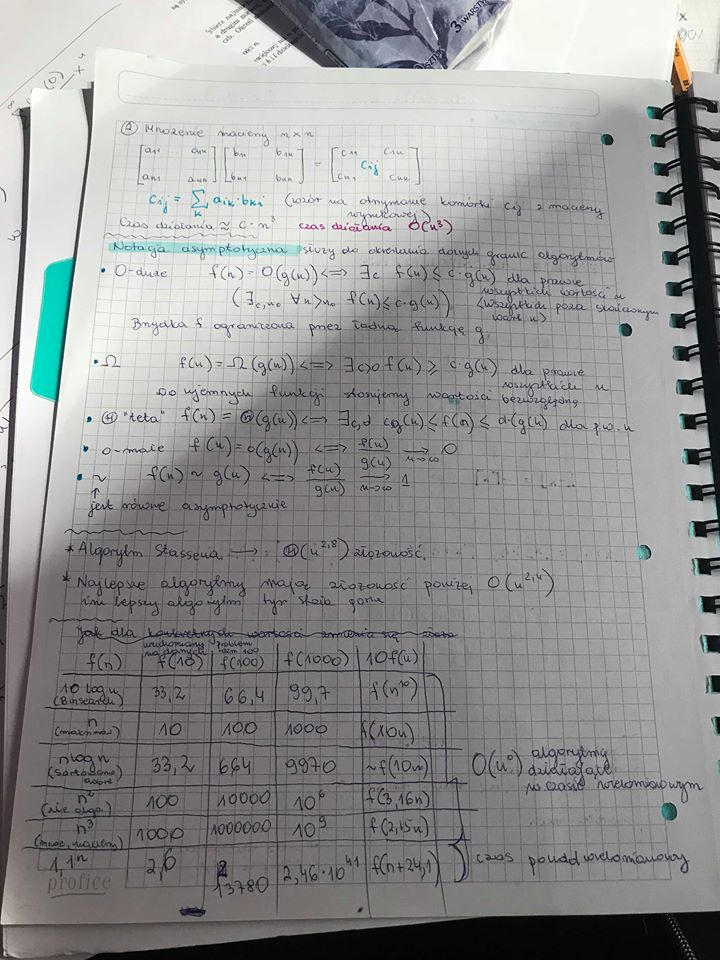 ① Mnożenie macierzy n×n
[a₁₁ a₁ₙ aₙ₁ aₙₙ] [b₁₁ b₁ₙ bₙ₁ bₙₙ] = [c₁₁ c₁ₙ cᵢⱼ cₙ₁ cₙₙ]
cᵢⱼ = Σₖ aᵢₖ·bₖᵢ (wzór na otrzymanie komórki cᵢⱼ z macierzy
wynikowej)
Czas działania ≈ c·n³ czas działania O(n³)
Notacja asymptotyczna służy do określania dolnych granic algorytmów
• O-duże f(n) = O(g(n)) <=> ∃c f(n) ≤ c·g(n) dla prawie
wszystkich wartości n
(∃c,n₀ ∀n>n₀ f(n) ≤ c·g(n)) (wszystkich poza skończonym
wart n)
Brzydka f ograniczona przez ładną funkcję g.
• Ω f(n) = Ω(g(n)) <=> ∃c>0 f(n) ≥ c·g(n) dla prawie
wszystkich n
Do ujemnych funkcji stosujemy wartości bezwzględną
• Θ "teta" f(n) = Θ(g(n)) <=> ∃c,d cg(n) ≤ f(n) ≤ d·(g(n) dla pw. n
• o-małe f(n) = o(g(n)) <=> f(n)/g(n) →n→∞ 0
• ~ f(n) ~ g(n) <=> f(n)/g(n) →n→∞ 1
↑
jest równe asymptotycznie
* Algorytm Stassena → Θ(n^2,8) złożoność.
* Najlepsze algorytmy mają złożoność powżej O(n^2,4)
im lepszy algorytm tyr stała gorsza
Jak dla konkretnych wartości zmienia się
uruchomiony na danych problem rozm 100
f(n) f(10) f(100) f(1000) 10f(n)
10 log n (Binsearch) 33,2 66,4 99,7 f(n¹⁰)
n 10 100 1000 f(10n)
n log n (Sortowanie dobre) 33,2 664 9970 ~f(10n)
n² 100 10000 10⁶ f(3,16n)
n³ (mnoż. macierzy) 1000 1000000 10⁹ f(2,15n)
1,1ⁿ 2,6 13780 2,46·10⁴¹ f(n+24,1)
algorytmy
działające
w czasie wielomianowym
czas ponadwielomianowy
profice
3.WARSTW